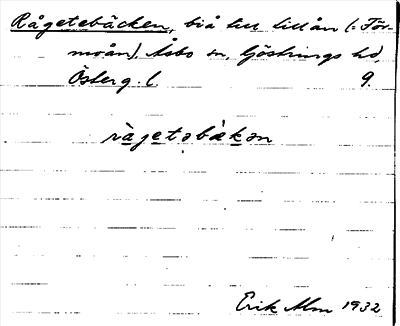 Rågetebäcken, biå till lillån (: Tör-
moån), Åsbo sn, Göstrings hd,
Österg. l. 9.
ràgetəbä̀kən
Erik Alm 1932